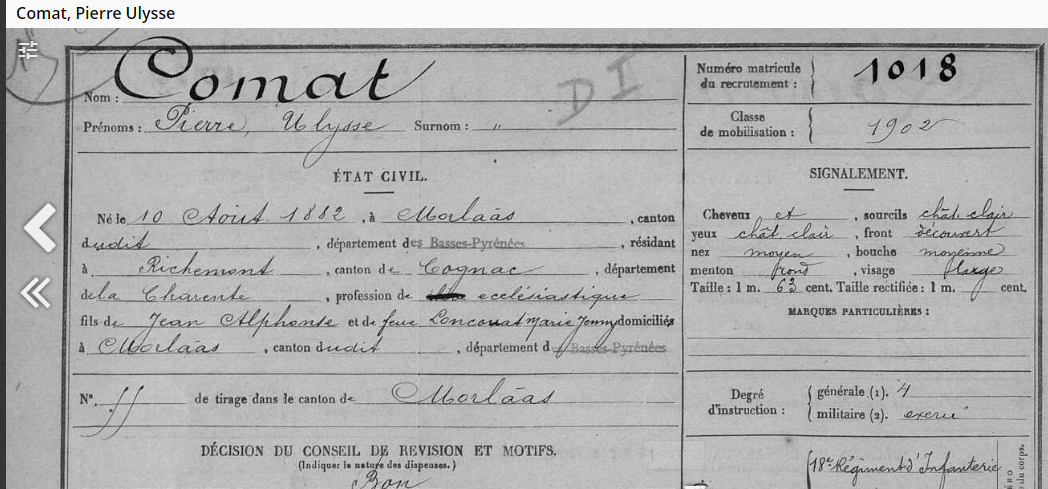 Comat, Pierre Ulysse
Nom : Comat
DI
Prénoms : Pierre, Ulysse Surnom : "
ÉTAT CIVIL.
Né le 10 Août 1882, à Morlaàs, canton
dudit, département des Basses-Pyrénées, résidant
à Richemont, canton de Cognac, département
de la Charente, profession de ecclésiastique
fils de Jean Alphonse et de feue Loncouat Marie Jenny domiciliés
à Morlaàs, canton dudit, département des Basses-Pyrénées
N°. 55 de tirage dans le canton de Morlaàs
DÉCISION DU CONSEIL DE REVISION ET MOTIFS.
(Indiquer la nature des dispenses.)
Bon
Numéro matricule
du recrutement : 1018
Classe
de mobilisation : 1902
SIGNALEMENT.
Cheveux et, sourcils chât. clair
yeux chât. clair, front découvert
nez moyen, bouche moyenne
menton rond, visage large
Taille : 1 m. 63 cent. Taille rectifiée : 1 m. cent.
MARQUES PARTICULIÈRES :
Degré
d'instruction :
générale (1). 4
militaire (2). exercé
18e Régiment d'Infanterie
du corps.